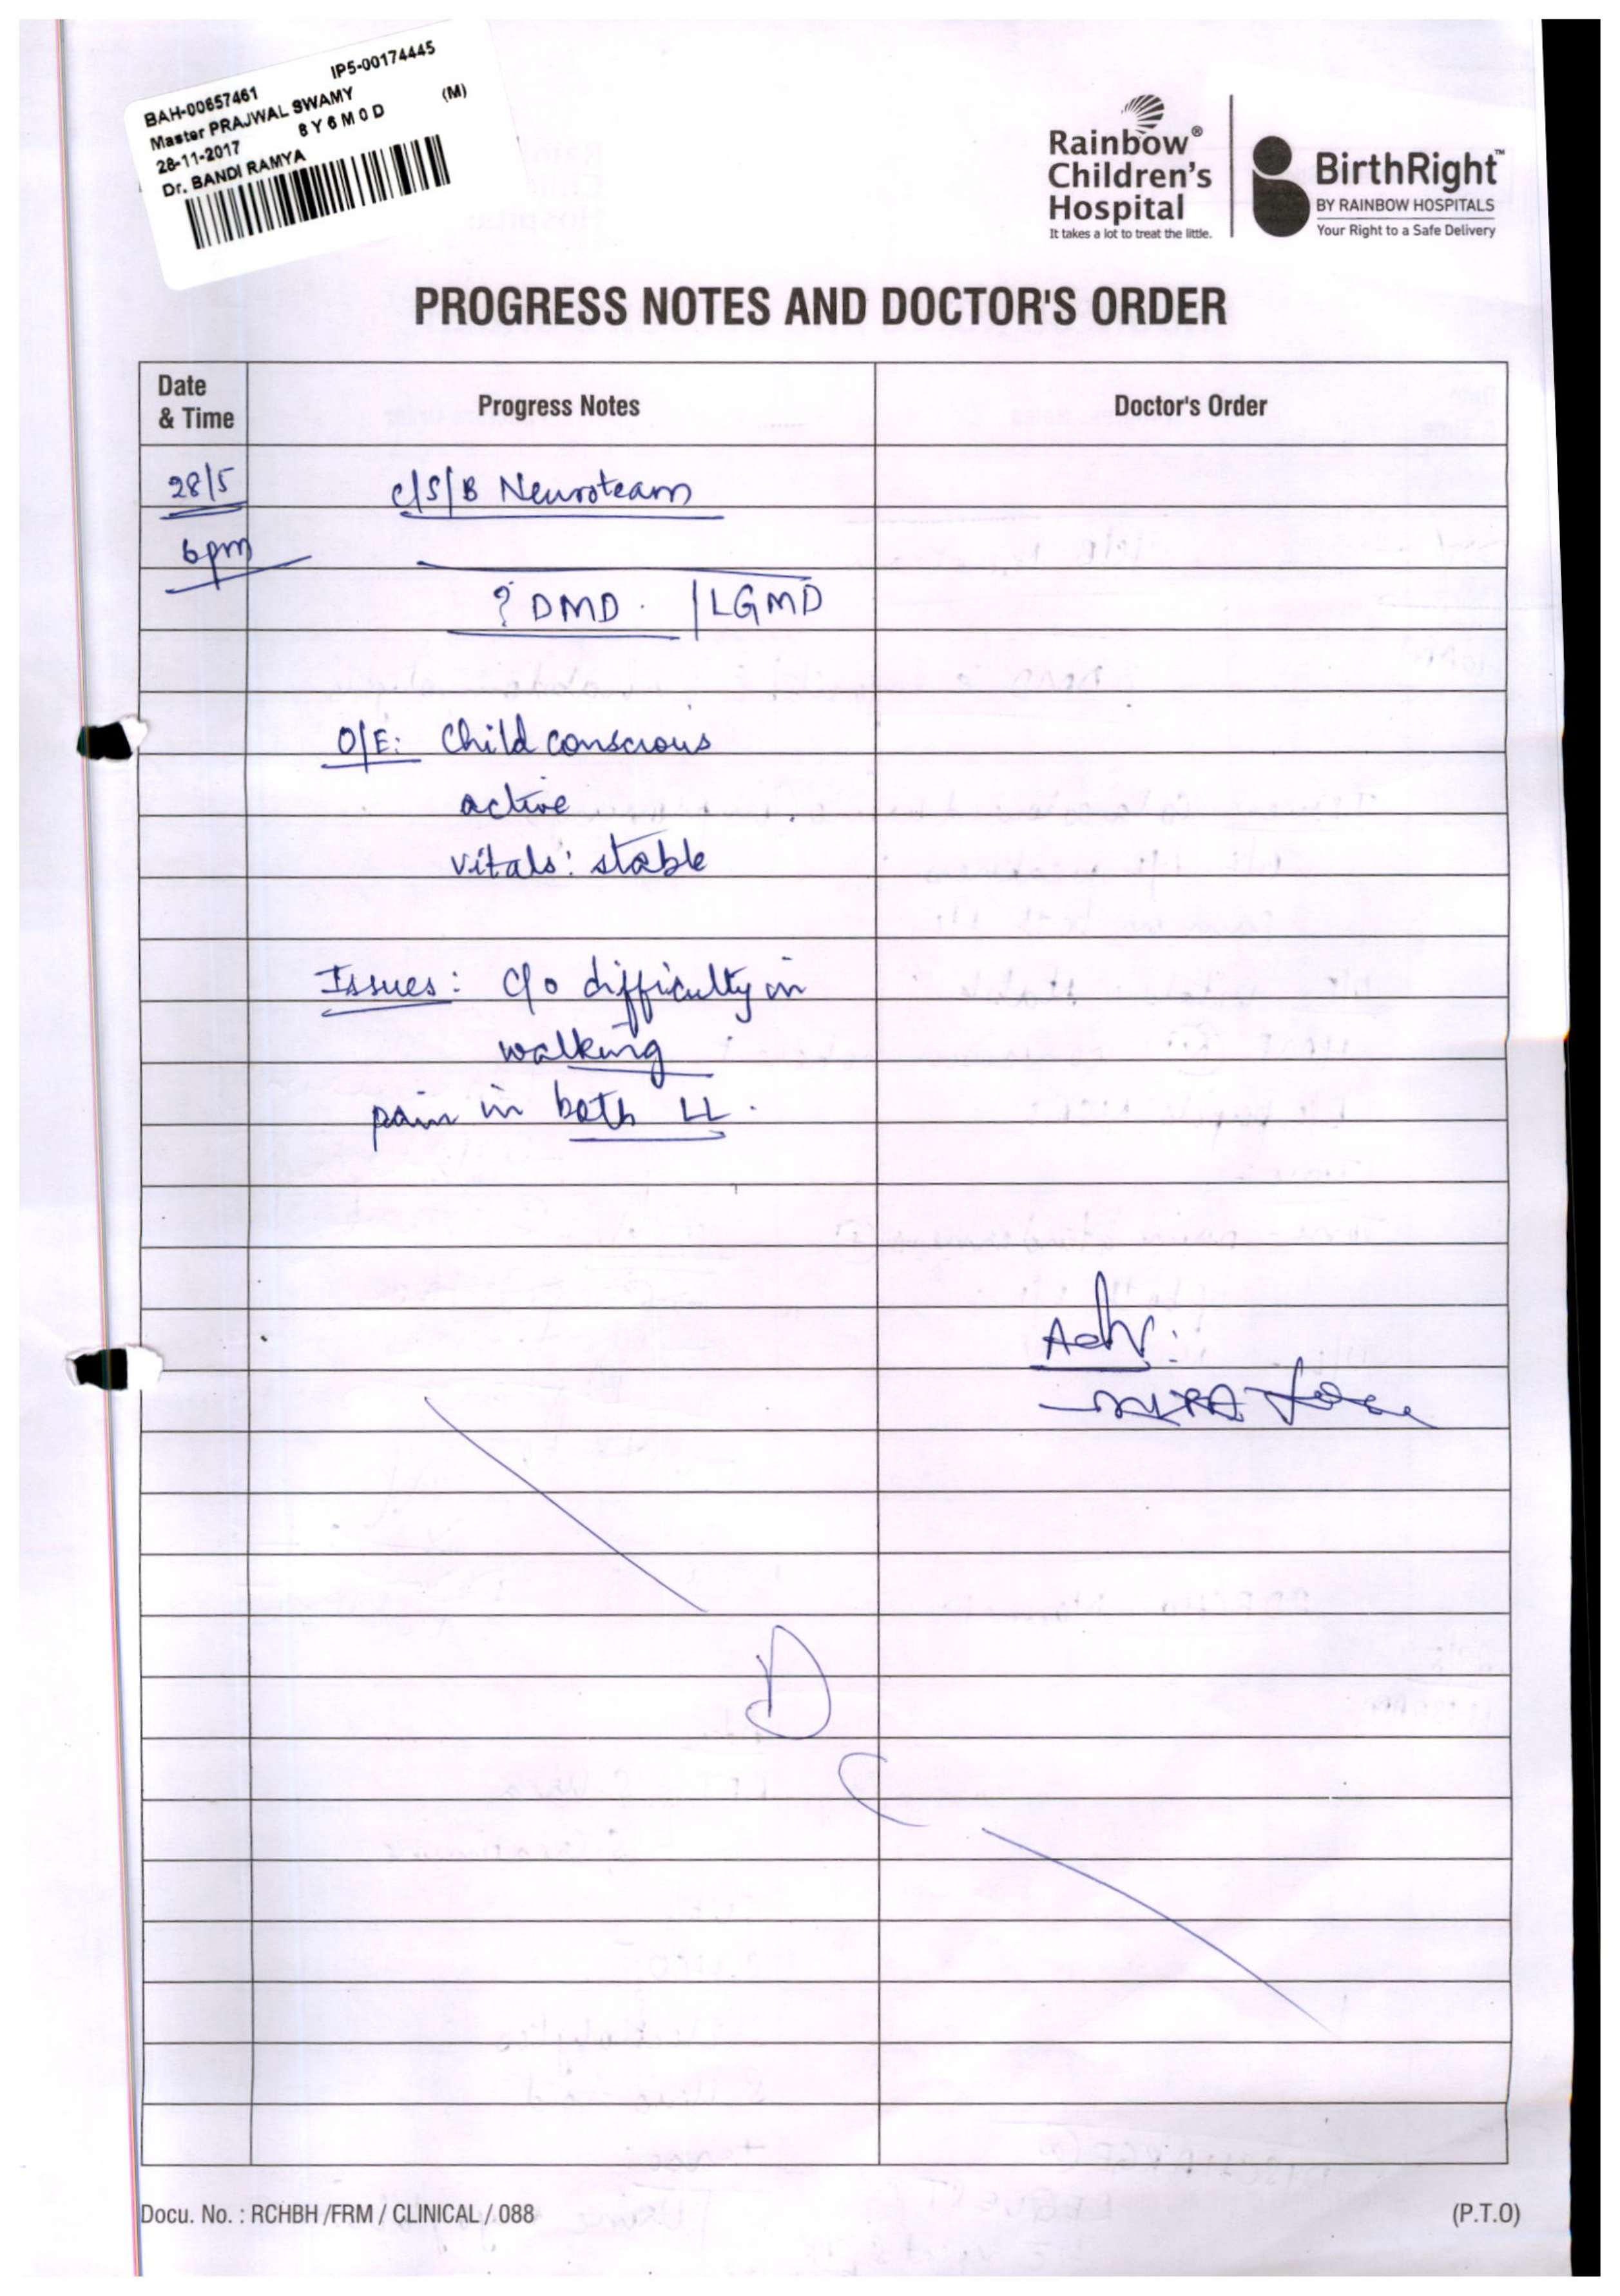 IP5-00174445
BAH-00657461
Master PRAJWAL SWAMY (M)
28-11-2017 8 Y 6 M 0 D
Dr. BANDI RAMYA
Rainbow®
Children's
Hospital
It takes a lot to treat the little.
BirthRight™
BY RAINBOW HOSPITALS
Your Right to a Safe Delivery
PROGRESS NOTES AND DOCTOR'S ORDER
Date
& Time
Progress Notes
Doctor's Order
28/5
C/S/B Neuroteam
6pm
? DMD. / LGMD
O/E: Child conscious
active
vitals: stable
Issues: C/o difficulty in
walking
pain in both LL.
Adv:
D
C
Docu. No. : RCHBH /FRM / CLINICAL / 088
(P.T.O)